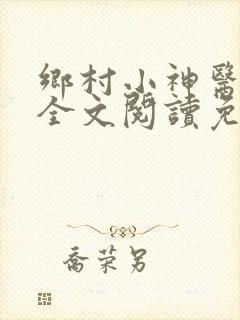 鄉村小神醫
全文閱讀免
喬荣另